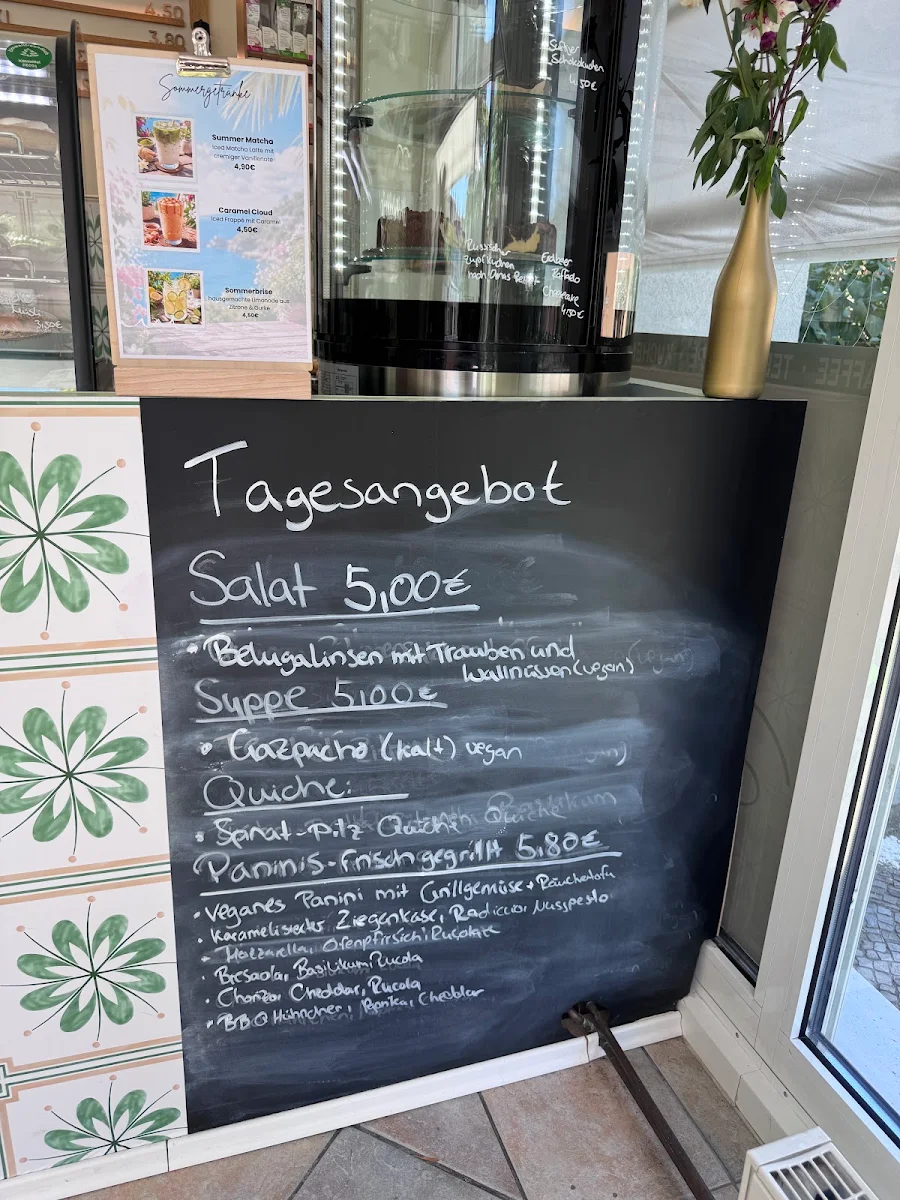 4.50
3.80
Sommergetränke
Summer Matcha
Iced Matcha Latte mit
cremiger Vanillenote
4,90€
Caramel Cloud
Iced Frappé mit Caramel
4,50€
Sommerbrise
hausgemachte Limonade aus
Zitrone & Gurke
4,50€
3,50€
Saftiger
Schokokuchen
4,50€
Russischer
Zupfkuchen
nach Omas Rezept
Erdbeer
Raffaelo
Cheesecake
4,50€
Tagesangebot
Salat 5,00€
• Belugalinsen mit Trauben und
Wallnüssen (vegan)
Suppe 5,00€
• Gazpacho (kalt) vegan
Quiche:
• Spinat-Pilz Quiche
Paninis-frisch gegrillt 5,80€
• Veganes Panini mit Grillgemüse + Räuchertofu
• Karamelisierter Ziegenkäse, Radiccio, Nusspesto
• Mozzarella, Ofenpfirsich, Rucola
• Bresaola, Basilikum, Rucola
• Chorizo, Cheddar, Rucola
• BBQ Hühnchen, Paprika, Cheddar